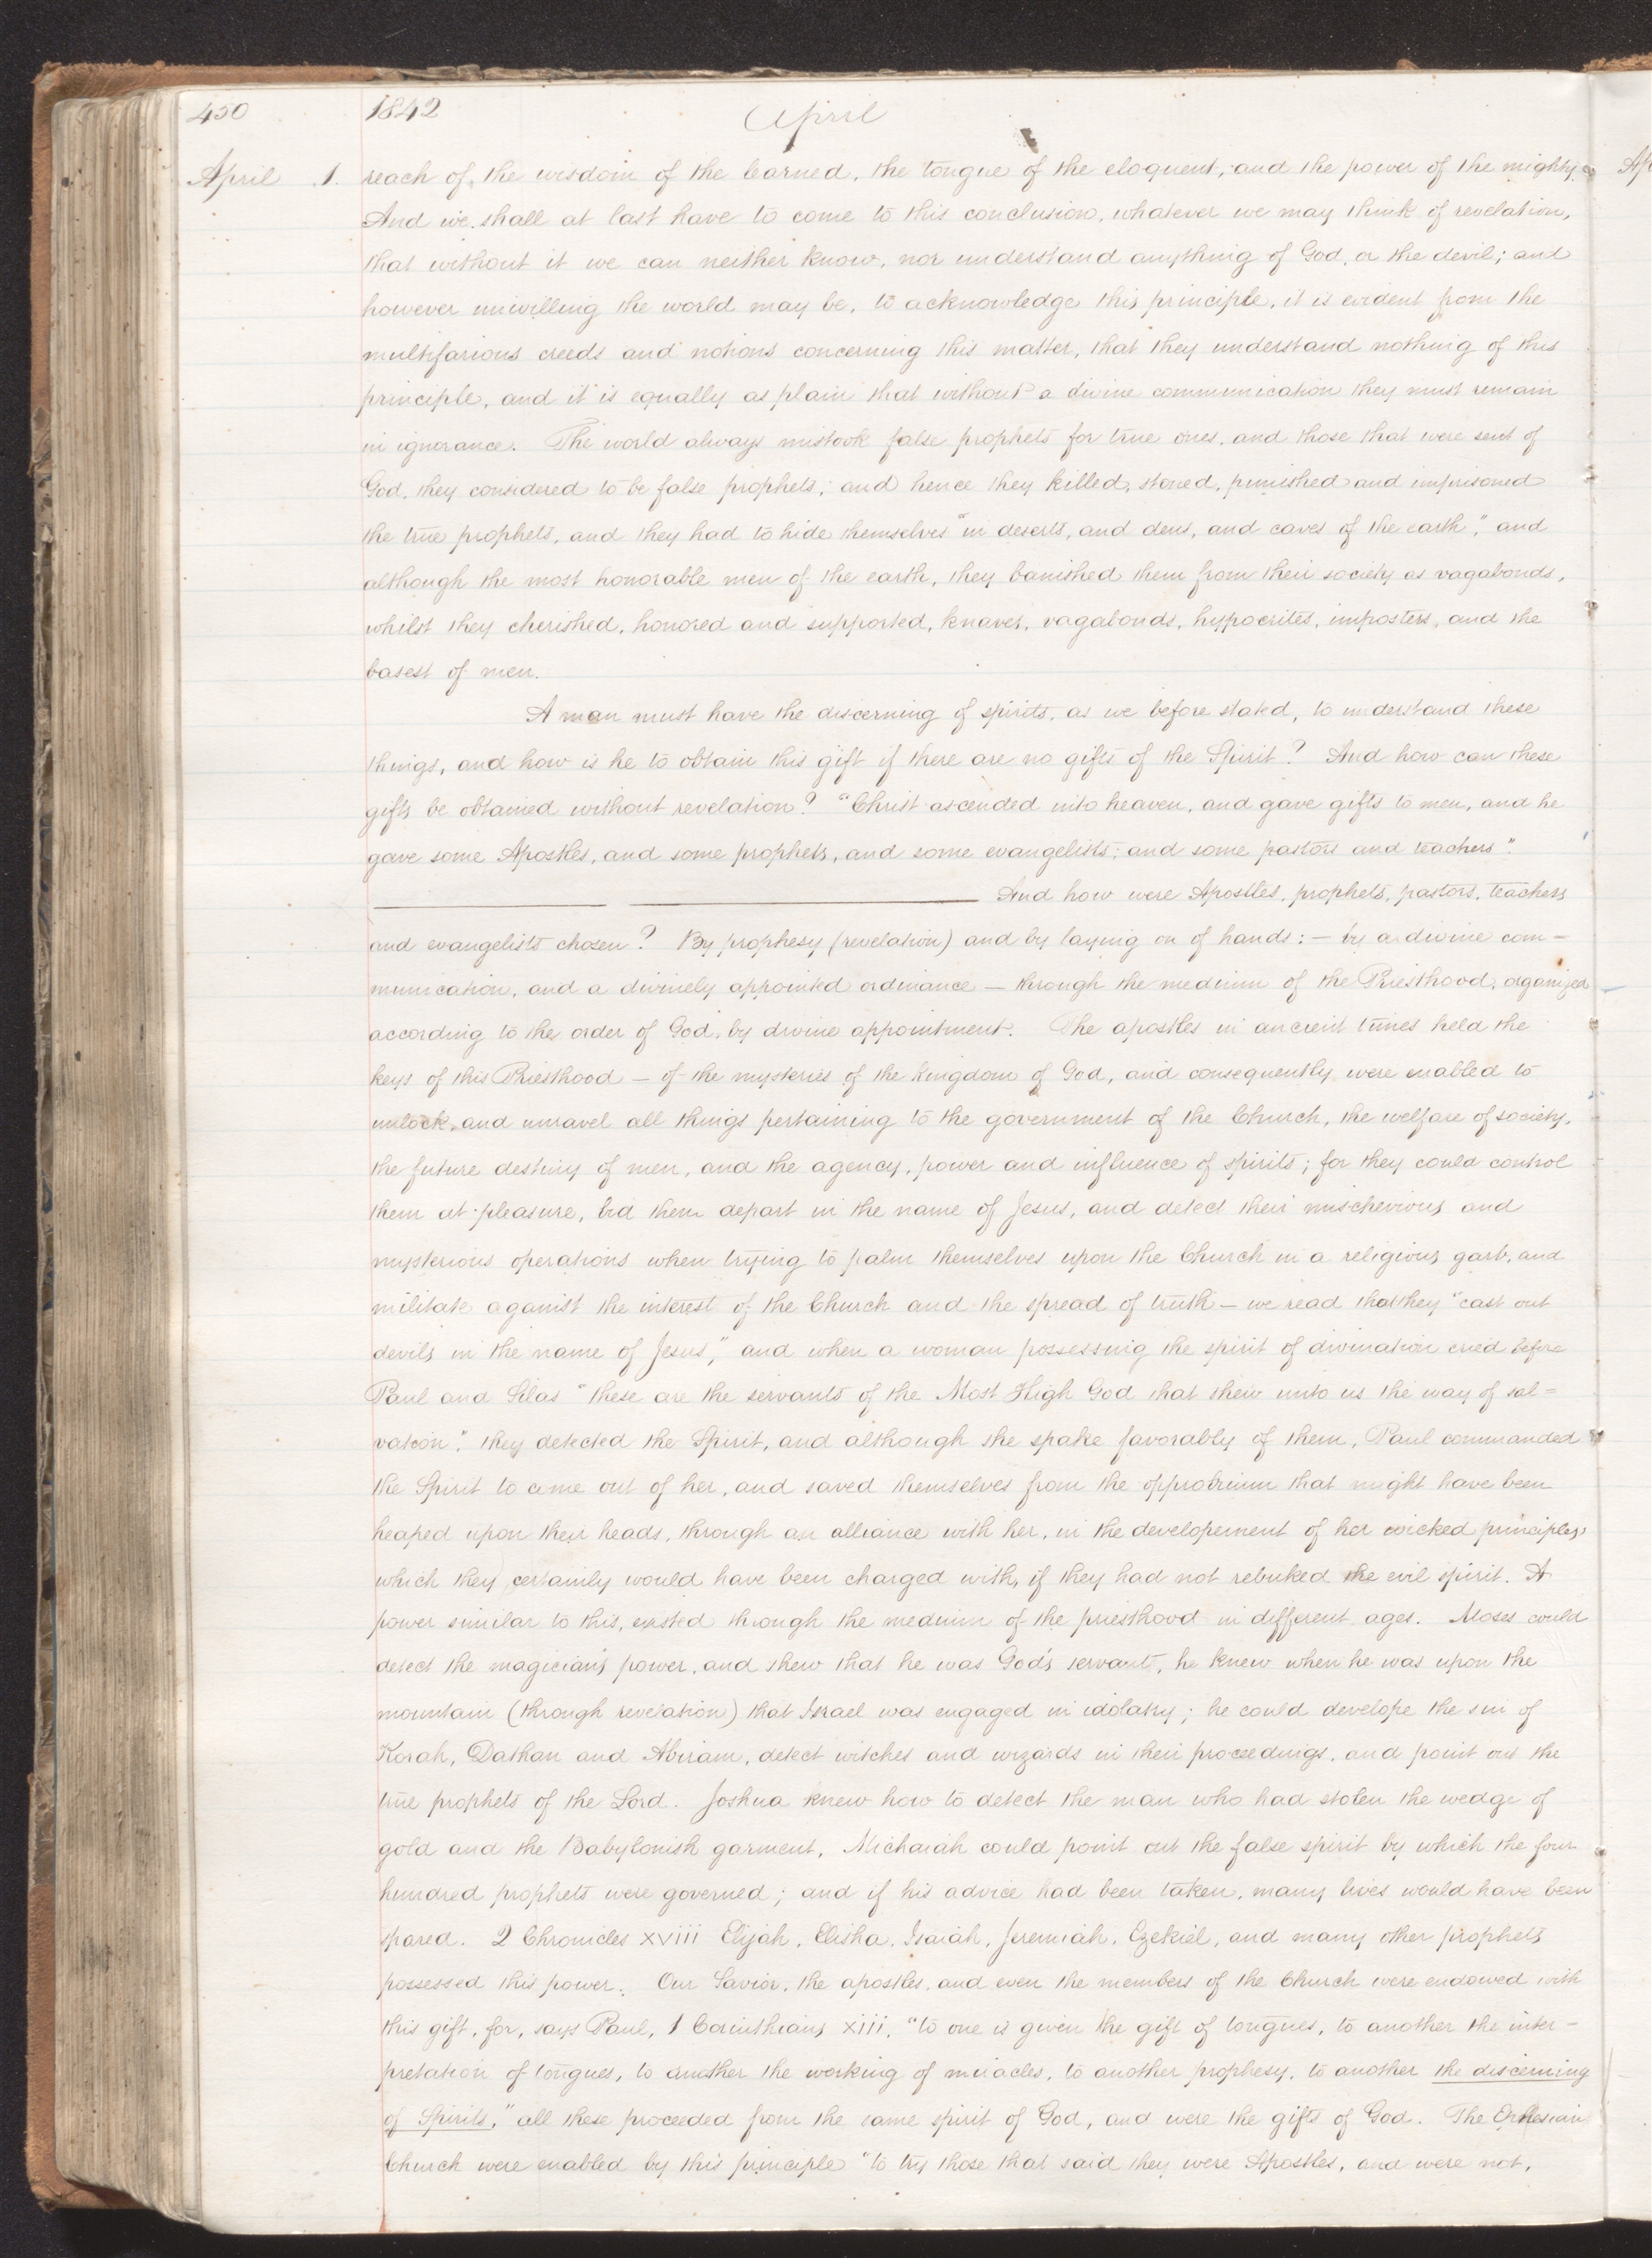 450 1842 April
April 1. reach of, the wisdom of the learned, the tongue of the eloquent, and the power of the mighty.
And we shall at last have to come to this conclusion, whatever we may think of revelation,
that without it we can neither know, nor understand anything of God, or the devil; and
however unwilling the world may be, to acknowledge this principle, it is evident from the
multifarious creeds and notions concerning this matter, that they understand nothing of this
principle, and it is equally as plain that without a divine communication they must remain
in ignorance. The world always mistook false prophets for true ones, and those that were sent of
God, they considered to be false prophets; and hence they killed, stoned, punished and imprisoned
the true prophets, and they had to hide themselves "in deserts, and dens, and caves of the earth", and
although the most honorable men of the earth, they banished them from their society as vagabonds,
whilst they cherished, honored and supported, knaves, vagabonds, hypocrites, imposters, and the
basest of men.
A man must have the discerning of spirits, as we before stated, to understand these
things, and how is he to obtain this gift if there are no gifts of the Spirit? And how can these
gifts be obtained without revelation? "Christ ascended into heaven, and gave gifts to men, and he
gave some Apostles, and some prophets, and some evangelists; and some pastors and teachers".
And how were Apostles, prophets, pastors, teachers
and evangelists chosen? By prophesy (revelation) and by laying on of hands: — by a divine com-
munication, and a divinely appointed ordinance — through the medium of the Priesthood, organized
according to the order of God, by divine appointment. The apostles in ancient times held the
keys of this Priesthood — of the mysteries of the kingdom of God, and consequently were enabled to
unlock, and unravel all things pertaining to the government of the Church, the welfare of society,
the future destiny of men, and the agency, power and influence of spirits; for they could control
them at pleasure, bid them depart in the name of Jesus, and detect their mischevious and
mysterious operations when trying to palm themselves upon the Church in a religious garb, and
militate against the interest of the Church and the spread of truth — we read that they "cast out
devils in the name of Jesus," and when a woman possessing the spirit of divination cried before
Paul and Silas "these are the servants of the Most High God that shew unto us the way of sal=
vation", they detected the Spirit, and although she spake favorably of them, Paul commanded
the Spirit to come out of her, and saved themselves from the opprobrium that might have been
heaped upon their heads, through an alliance with her, in the developement of her wicked principles
which they certainly would have been charged with, if they had not rebuked the evil spirit. A
power similar to this, existed through the medium of the priesthood in different ages. Moses could
detect the magician's power, and shew that he was God's servant, he knew when he was upon the
mountain (through revelation) that Israel was engaged in idolatry; he could develope the sin of
Korah, Dathan and Abiram, detect witches and wizards in their proceedings, and point out the
true prophets of the Lord. Joshua knew how to detect the man who had stolen the wedge of
gold and the Babylonish garment, Michaiah could point out the false spirit by which the four
hundred prophets were governed; and if his advice had been taken, many lives would have been
spared. 2 Chronicles xviii Elijah, Elisha, Isaiah, Jeremiah, Ezekiel, and many other prophets
possessed this power. Our Savior, the apostles, and even the members of the Church were endowed with
this gift, for, says Paul, 1 Corinthians xiii, "to one is given the gift of tongues, to another the inter-
pretation of tongues, to another the working of miracles, to another prophesy, to another the discerning
of Spirits," all these proceeded from the same spirit of God, and were the gifts of God. The Ephesian
Church were enabled by this principle "to try those that said they were Apostles, and were not,